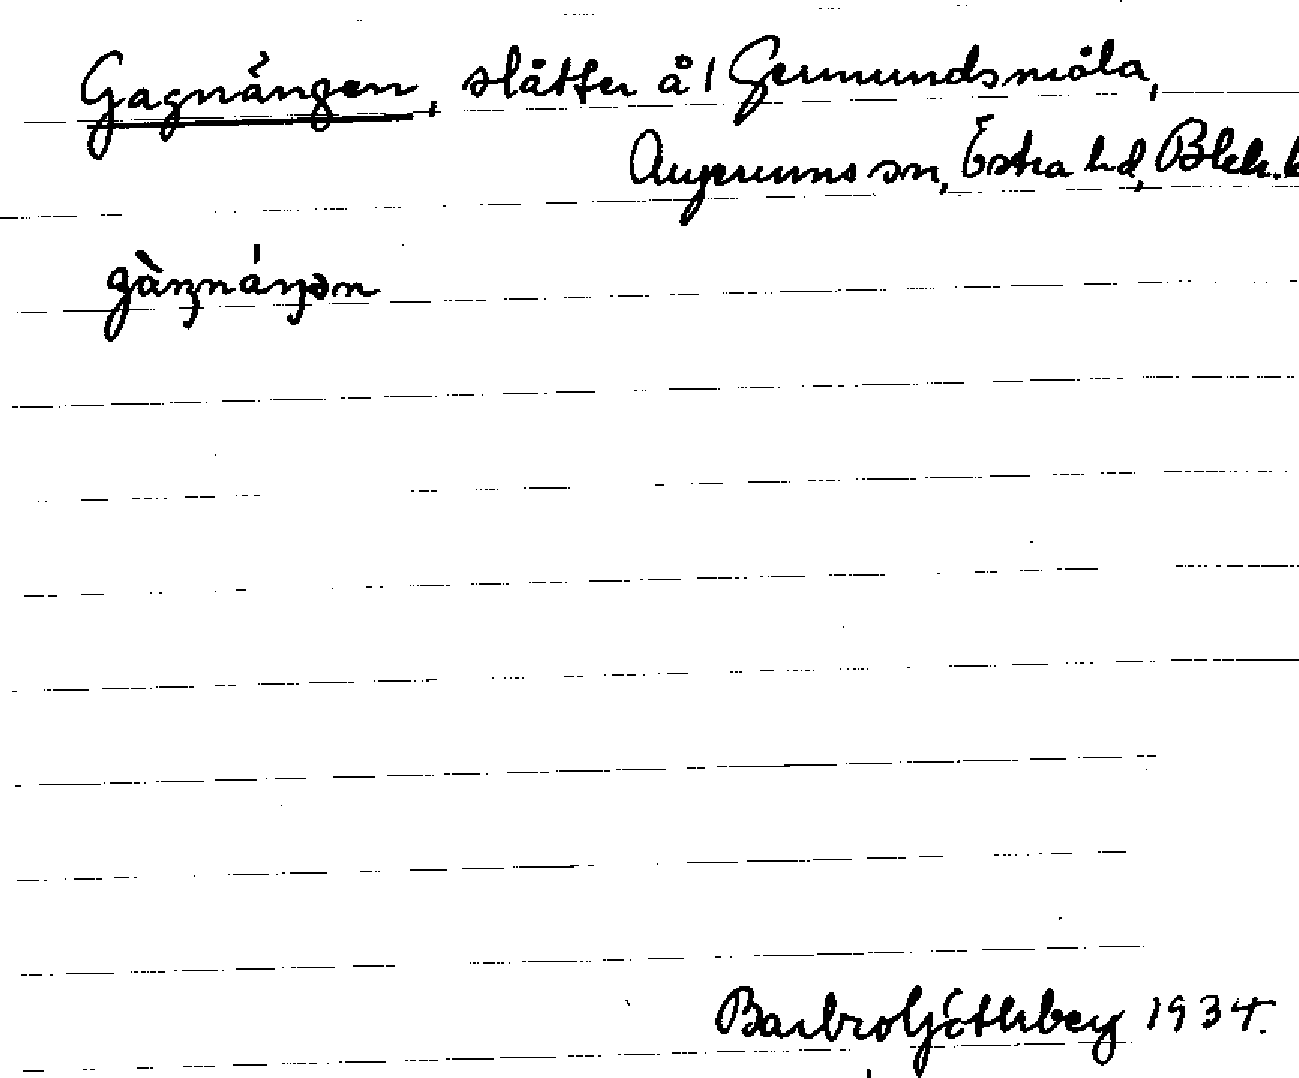 Gagnängen, slåtter å 1 Germundsmåla,
Augerums sn, Östra hd, Blek. l
gàŋnáŋən
Barbro Götheberg 1934.